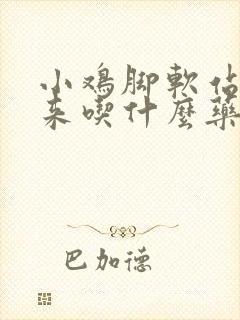 小鸡脚软佔
来喫什麼藥
巴加德